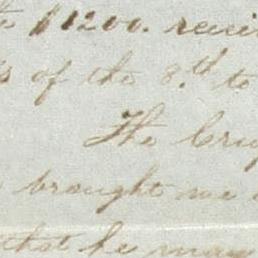 $1200. recei
of the 8.th to
The
brought me
that he may